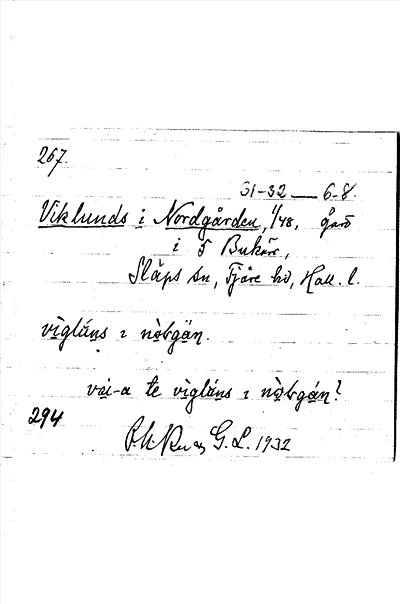 267.
31-32 — 6-8.
Viklunds i Nordgården, 1/48, gård
i 5 Bukärr,
Släps sn, Fjäre hd, Hall. l.
vìgláns ı nòbgän.
vai-a te vìgláns ı nòbgán?
294
G. L. 1932